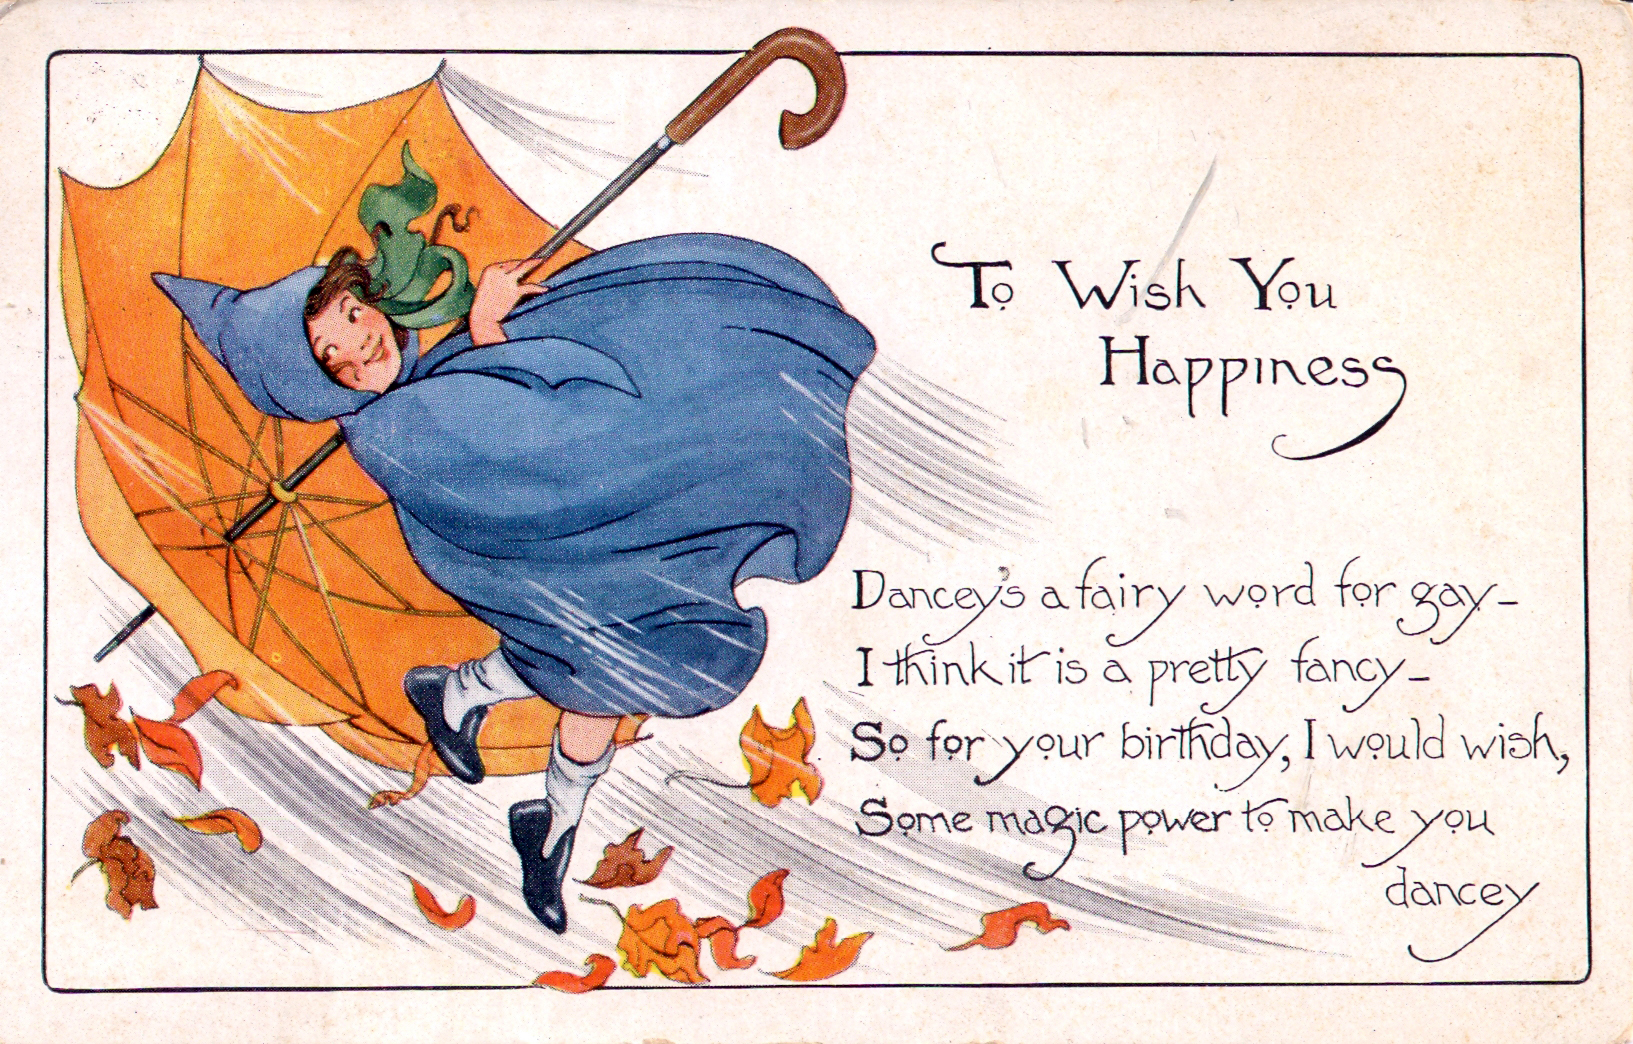 To Wish You
Happiness
Dancey's a fairy word for gay-
I think it is a pretty fancy-
So for your birthday, I would wish,
Some magic power to make you
dancey